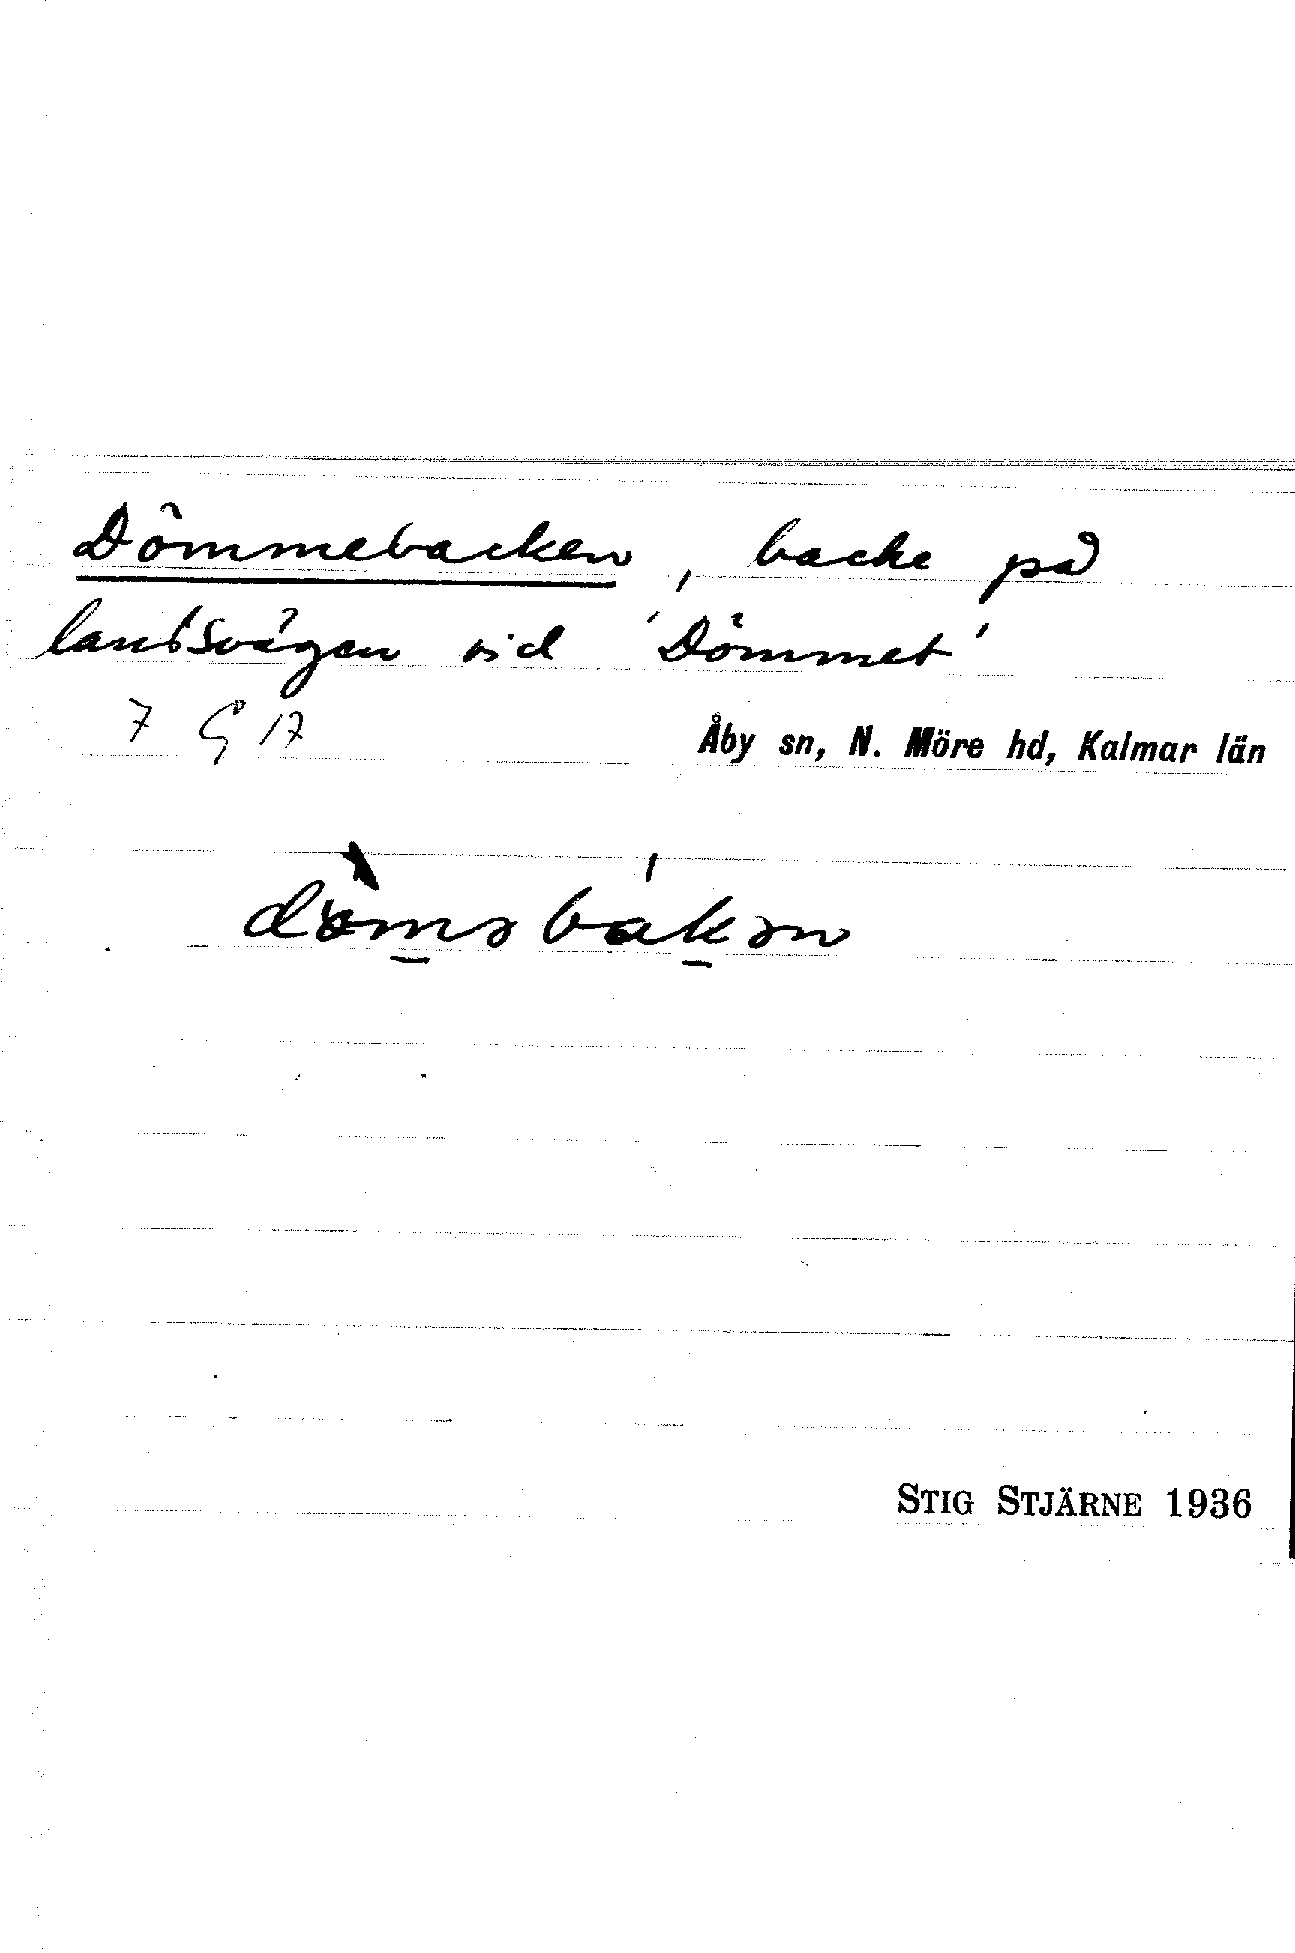 Dömmebacken, backe på
landsvägen vid 'Dömmet'
7 G 17 Åby sn, N. Möre hd, Kalmar län
STIG STJÄRNE 1936